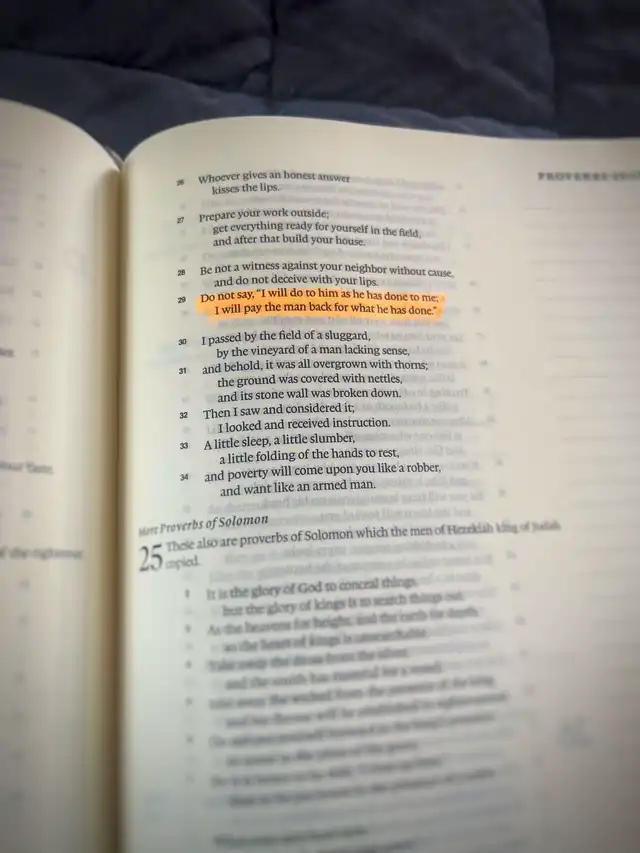 PROVERBS
26 Whoever gives an honest answer
kisses the lips.
27 Prepare your work outside;
get everything ready for yourself in the field,
and after that build your house.
28 Be not a witness against your neighbor without cause,
and do not deceive with your lips.
29 Do not say, “I will do to him as he has done to me;
I will pay the man back for what he has done.”
30 I passed by the field of a sluggard,
by the vineyard of a man lacking sense,
31 and behold, it was all overgrown with thorns;
the ground was covered with nettles,
and its stone wall was broken down.
32 Then I saw and considered it;
I looked and received instruction.
33 A little sleep, a little slumber,
a little folding of the hands to rest,
34 and poverty will come upon you like a robber,
and want like an armed man.
More Proverbs of Solomon
25 These also are proverbs of Solomon which the men of Hezekiah king of Judah
copied.
It is the glory of God to conceal things,
but the glory of kings is to search things out.
As the heavens for height, and the earth for depth,
so the heart of kings is unsearchable.
Take away the dross from the silver,
and the smith has material for a vessel;
take away the wicked from the presence of the king,
and his throne will be established in righteousness.